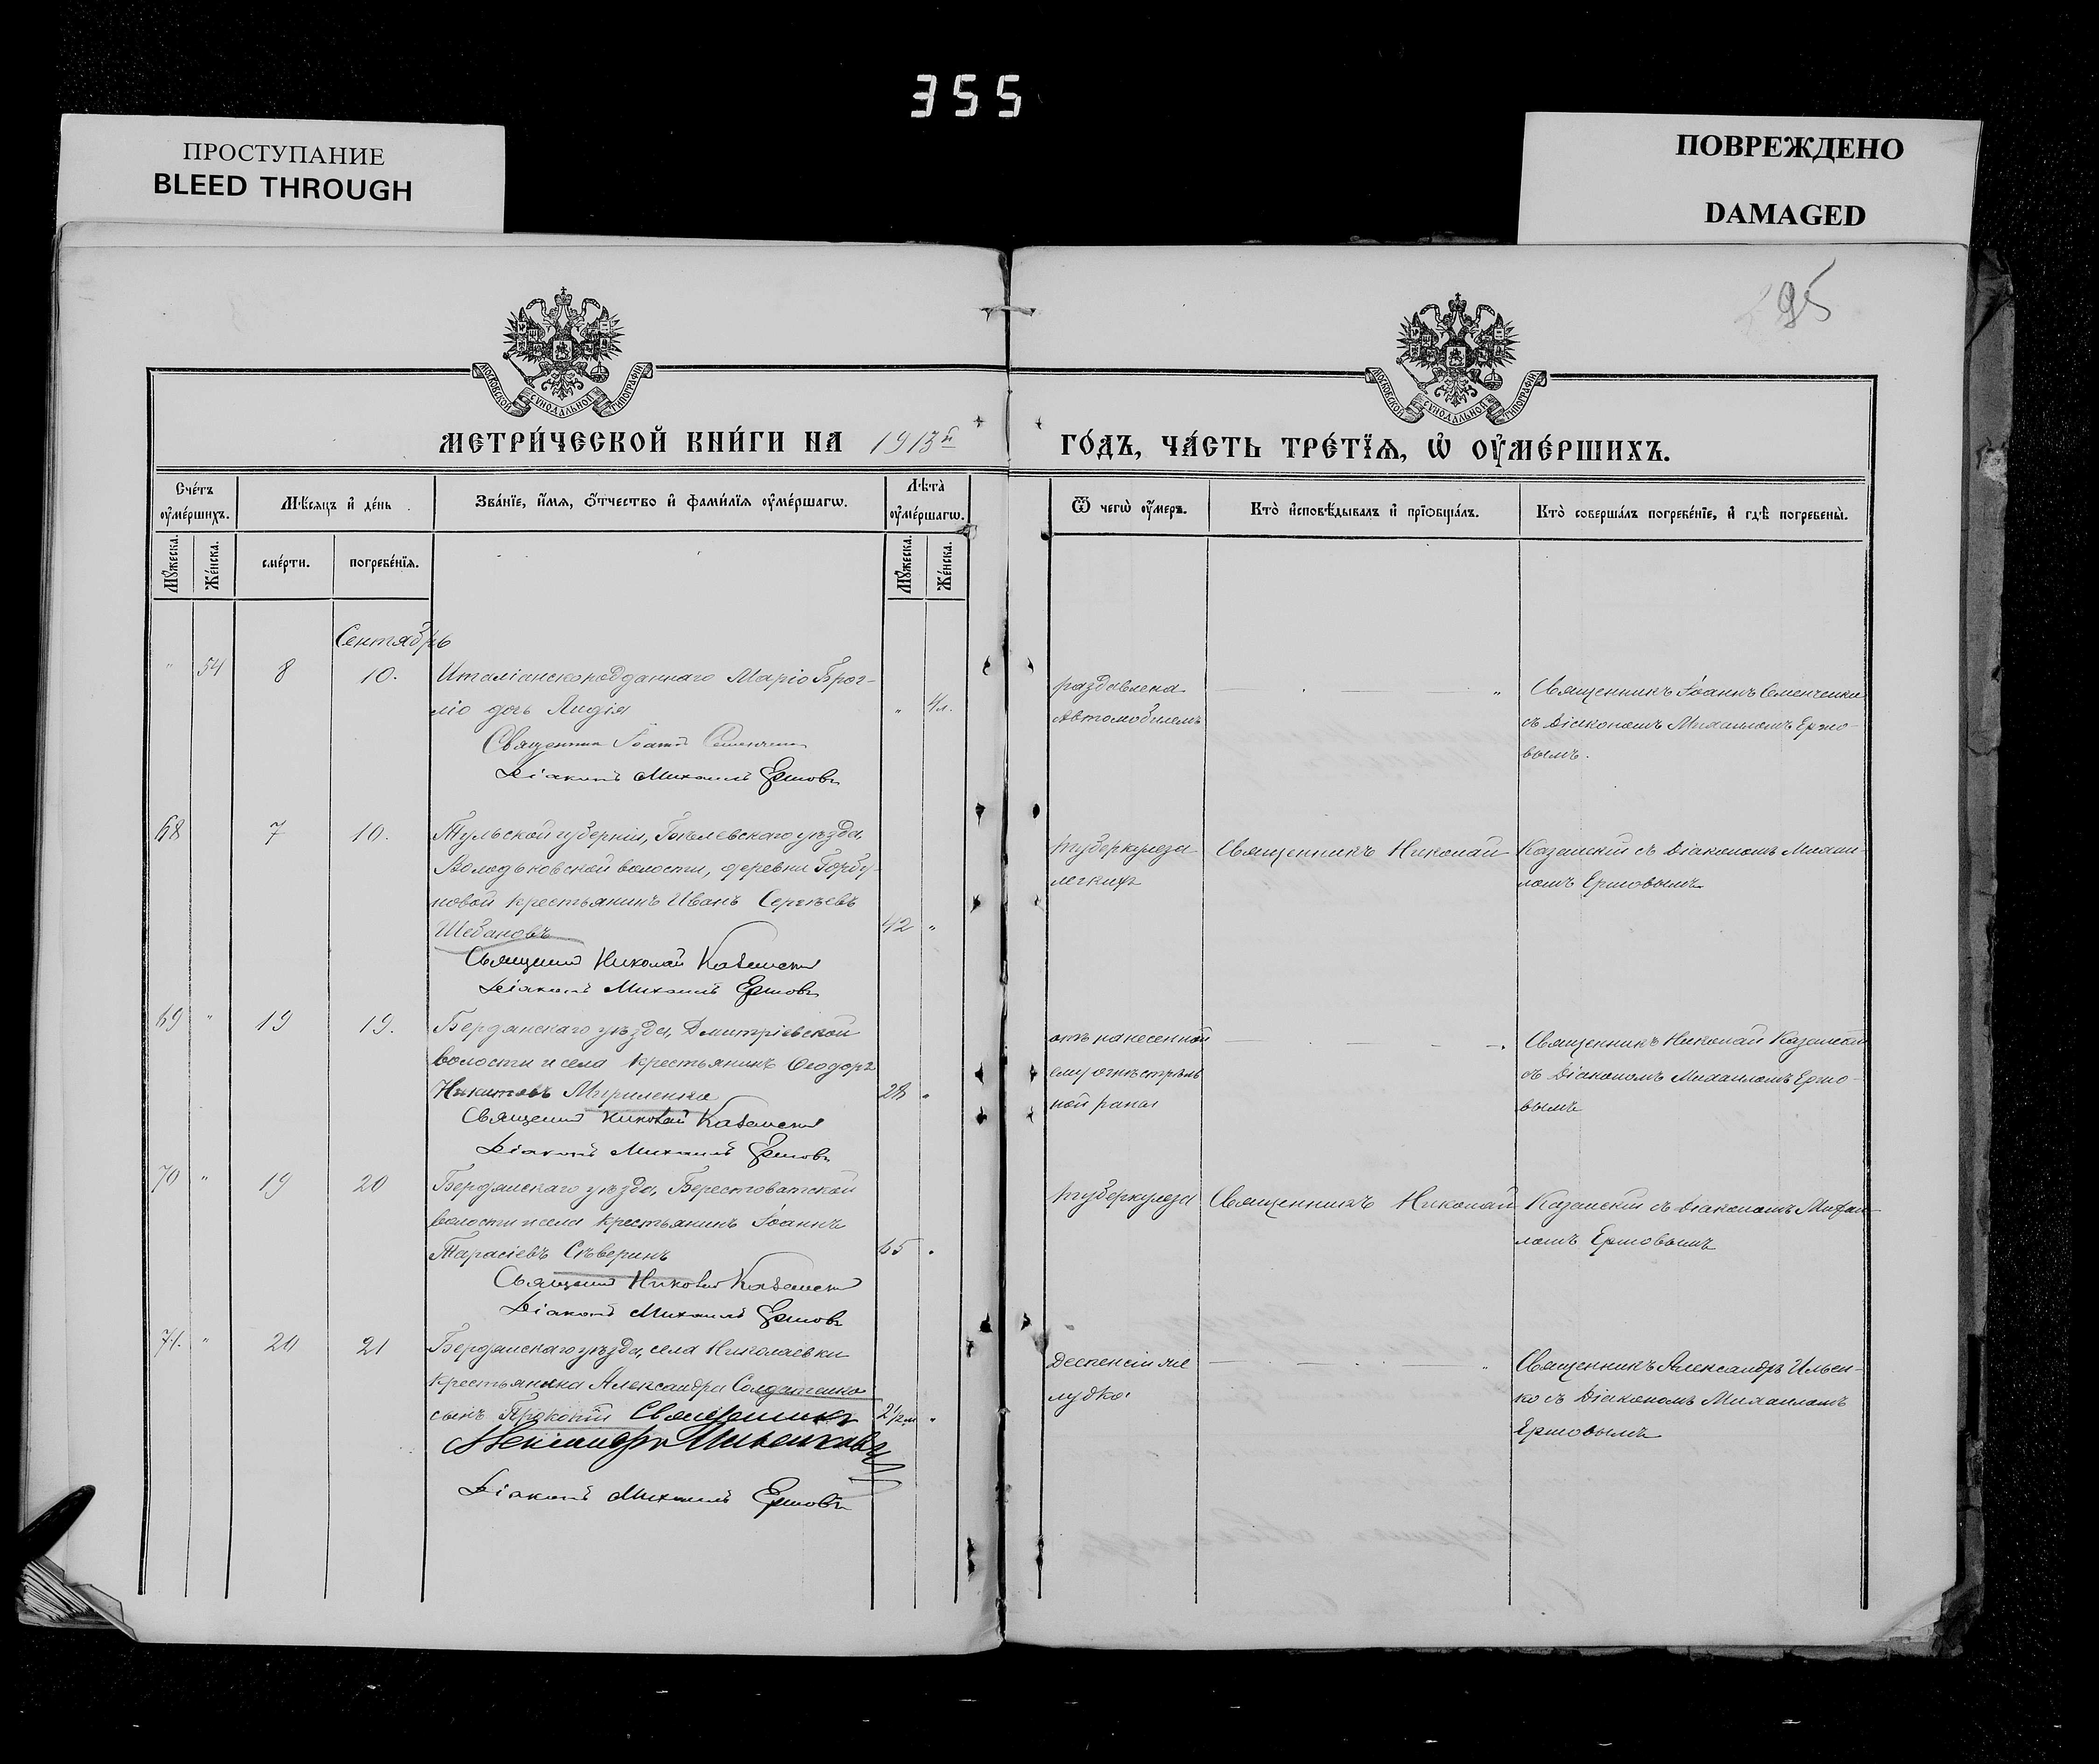 355
ПРОСТУПАНИЕ
BLEED THROUGH
ПОВРЕЖДЕНО
DAMAGED
95
МОСКОВСКОЙ СУНОДАЛЬНОЙ ТИПОГРАФІИ
МОСКОВСКОЙ СУНОДАЛЬНОЙ ТИПОГРАФІИ
МЕТРИ́ЧЕСКОЙ КНИ́ГИ НА 1913й
ГО́ДЪ, ЧА́СТЬ ТРЕ́ТЇѦ, Ѡ҆ ОУ҆МЕ́РШИХЪ.
Сче́тъ оу҆ме́ршихъ.
Мѣ́сѧцъ и҆ де́нь.
Зва́нїе, и҆́мѧ, ѻ҆́тчество и҆ фами́лїѧ оу҆ме́ршагѡ.
Лѣта̀ оу҆ме́ршагѡ.
Ѿ чегѡ̀ оу҆́меръ.
Кто̀ и҆сповѣ́дывалъ и҆ прїѻбща́лъ.
Кто̀ соверша́лъ погребе́нїе, и҆ гдѣ̀ погребены̀.
Мꙋ́жеска.
Же́нска.
сме́рти.
погребе́нїѧ.
Мꙋ́жеска.
Же́нска.
Сентябрь
" 54 8 10. Италіанскоподданнаго Маріо Брог-
ліо дочь Лидія " 4л.
Священникъ Іоаннъ Семенченко
Діаконъ Михаилъ Ершовъ
раздавлена
автомобилемъ
"
Священникъ Іоаннъ Семенченко
съ Діакономъ Михаиломъ Ершо-
вымъ.
68 7 10. Тульской губерніи, Бѣлевскаго уѣзда
Володьковской волости, деревни Горбу-
новой крестьянинъ Иванъ Сергѣевъ
Шебановъ 42 "
Священникъ Николай Казанскій
Діаконъ Михаилъ Ершовъ
туберкулеза
легкихъ
Священникъ Николай
Казанскій съ Діакономъ Михаи-
ломъ Ершовымъ
69 " 19 19. Бердянскаго уѣзда, Дмитріевской
волости и села крестьянинъ Ѳеодоръ
Никитовъ Мириленко 28 "
Священникъ Николай Казанскій
Діаконъ Михаилъ Ершовъ
отъ нанесенной
ему огнестрѣль
ной раны
Священникъ Николай Казанскій
съ Діакономъ Михаиломъ Ершо-
вымъ
70 " 19 20 Бердянскаго уѣзда, Берестоватской
волости и села крестьянинъ Іоаннъ
Тарасіевъ Сѣверинъ 65 "
Священникъ Николай Казанскій
Діаконъ Михаилъ Ершовъ
туберкулеза
Священникъ Николай
Казанскій съ Діакономъ Михаи-
ломъ Ершовымъ
71. " 20 21 Бердянскаго уѣзда, села Николаевки
крестьянина Александра Солдатенко
сынъ Прокопій Священникъ 2½м "
Александръ
Діаконъ Михаилъ Ершовъ
Деспенсіи же
лудка
"
Священникъ Александръ Ильен-
ко съ Діакономъ Михаиломъ
Ершовымъ